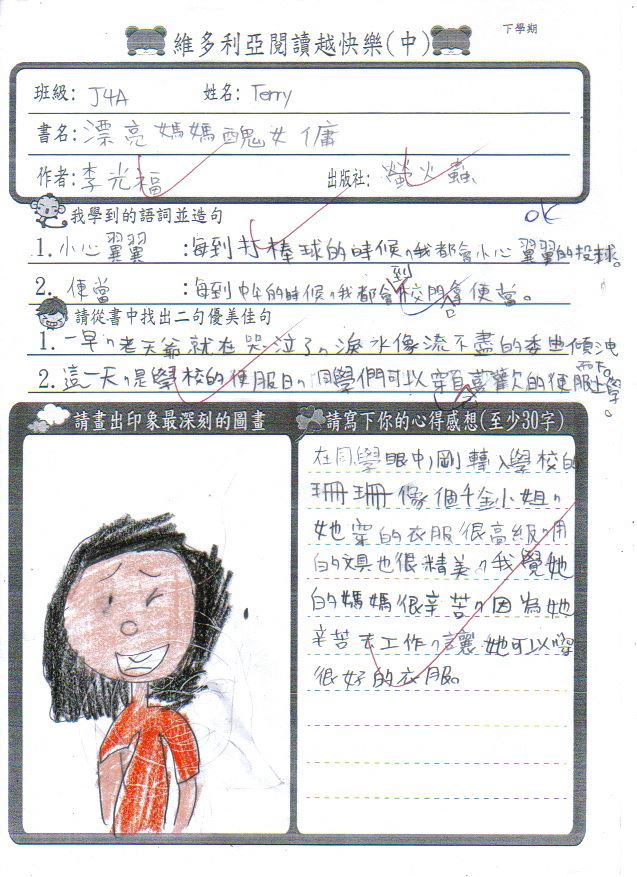 下學期
維多利亞閱讀越快樂(中)
班級: J4A 姓名: Terry
書名: 漂亮媽媽醜女傭
作者: 李光福 出版社: 螢火蟲
我學到的語詞並造句 ok
1. 小心翼翼 : 每到打棒球的時候,我都會小心翼翼的投球。
2. 便當 : 每到中午的時候,我都會到校門拿便當。
請從書中找出二句優美佳句
1. 一早,老天爺就在哭泣了,淚水像流不盡的委曲傾洩而下。
2. 這一天,是學校的便服日,同學們可以穿自喜歡的便服上學。
請畫出印象最深刻的圖畫
請寫下你的心得感想(至少30字)
在同學眼中,剛轉入學校的
珊珊像個千金小姐,
她穿的衣服很高級,用
的文具也很精美,我覺她
的媽媽很辛苦,因為她
辛苦去工作,讓她可以穿
很好的衣服。